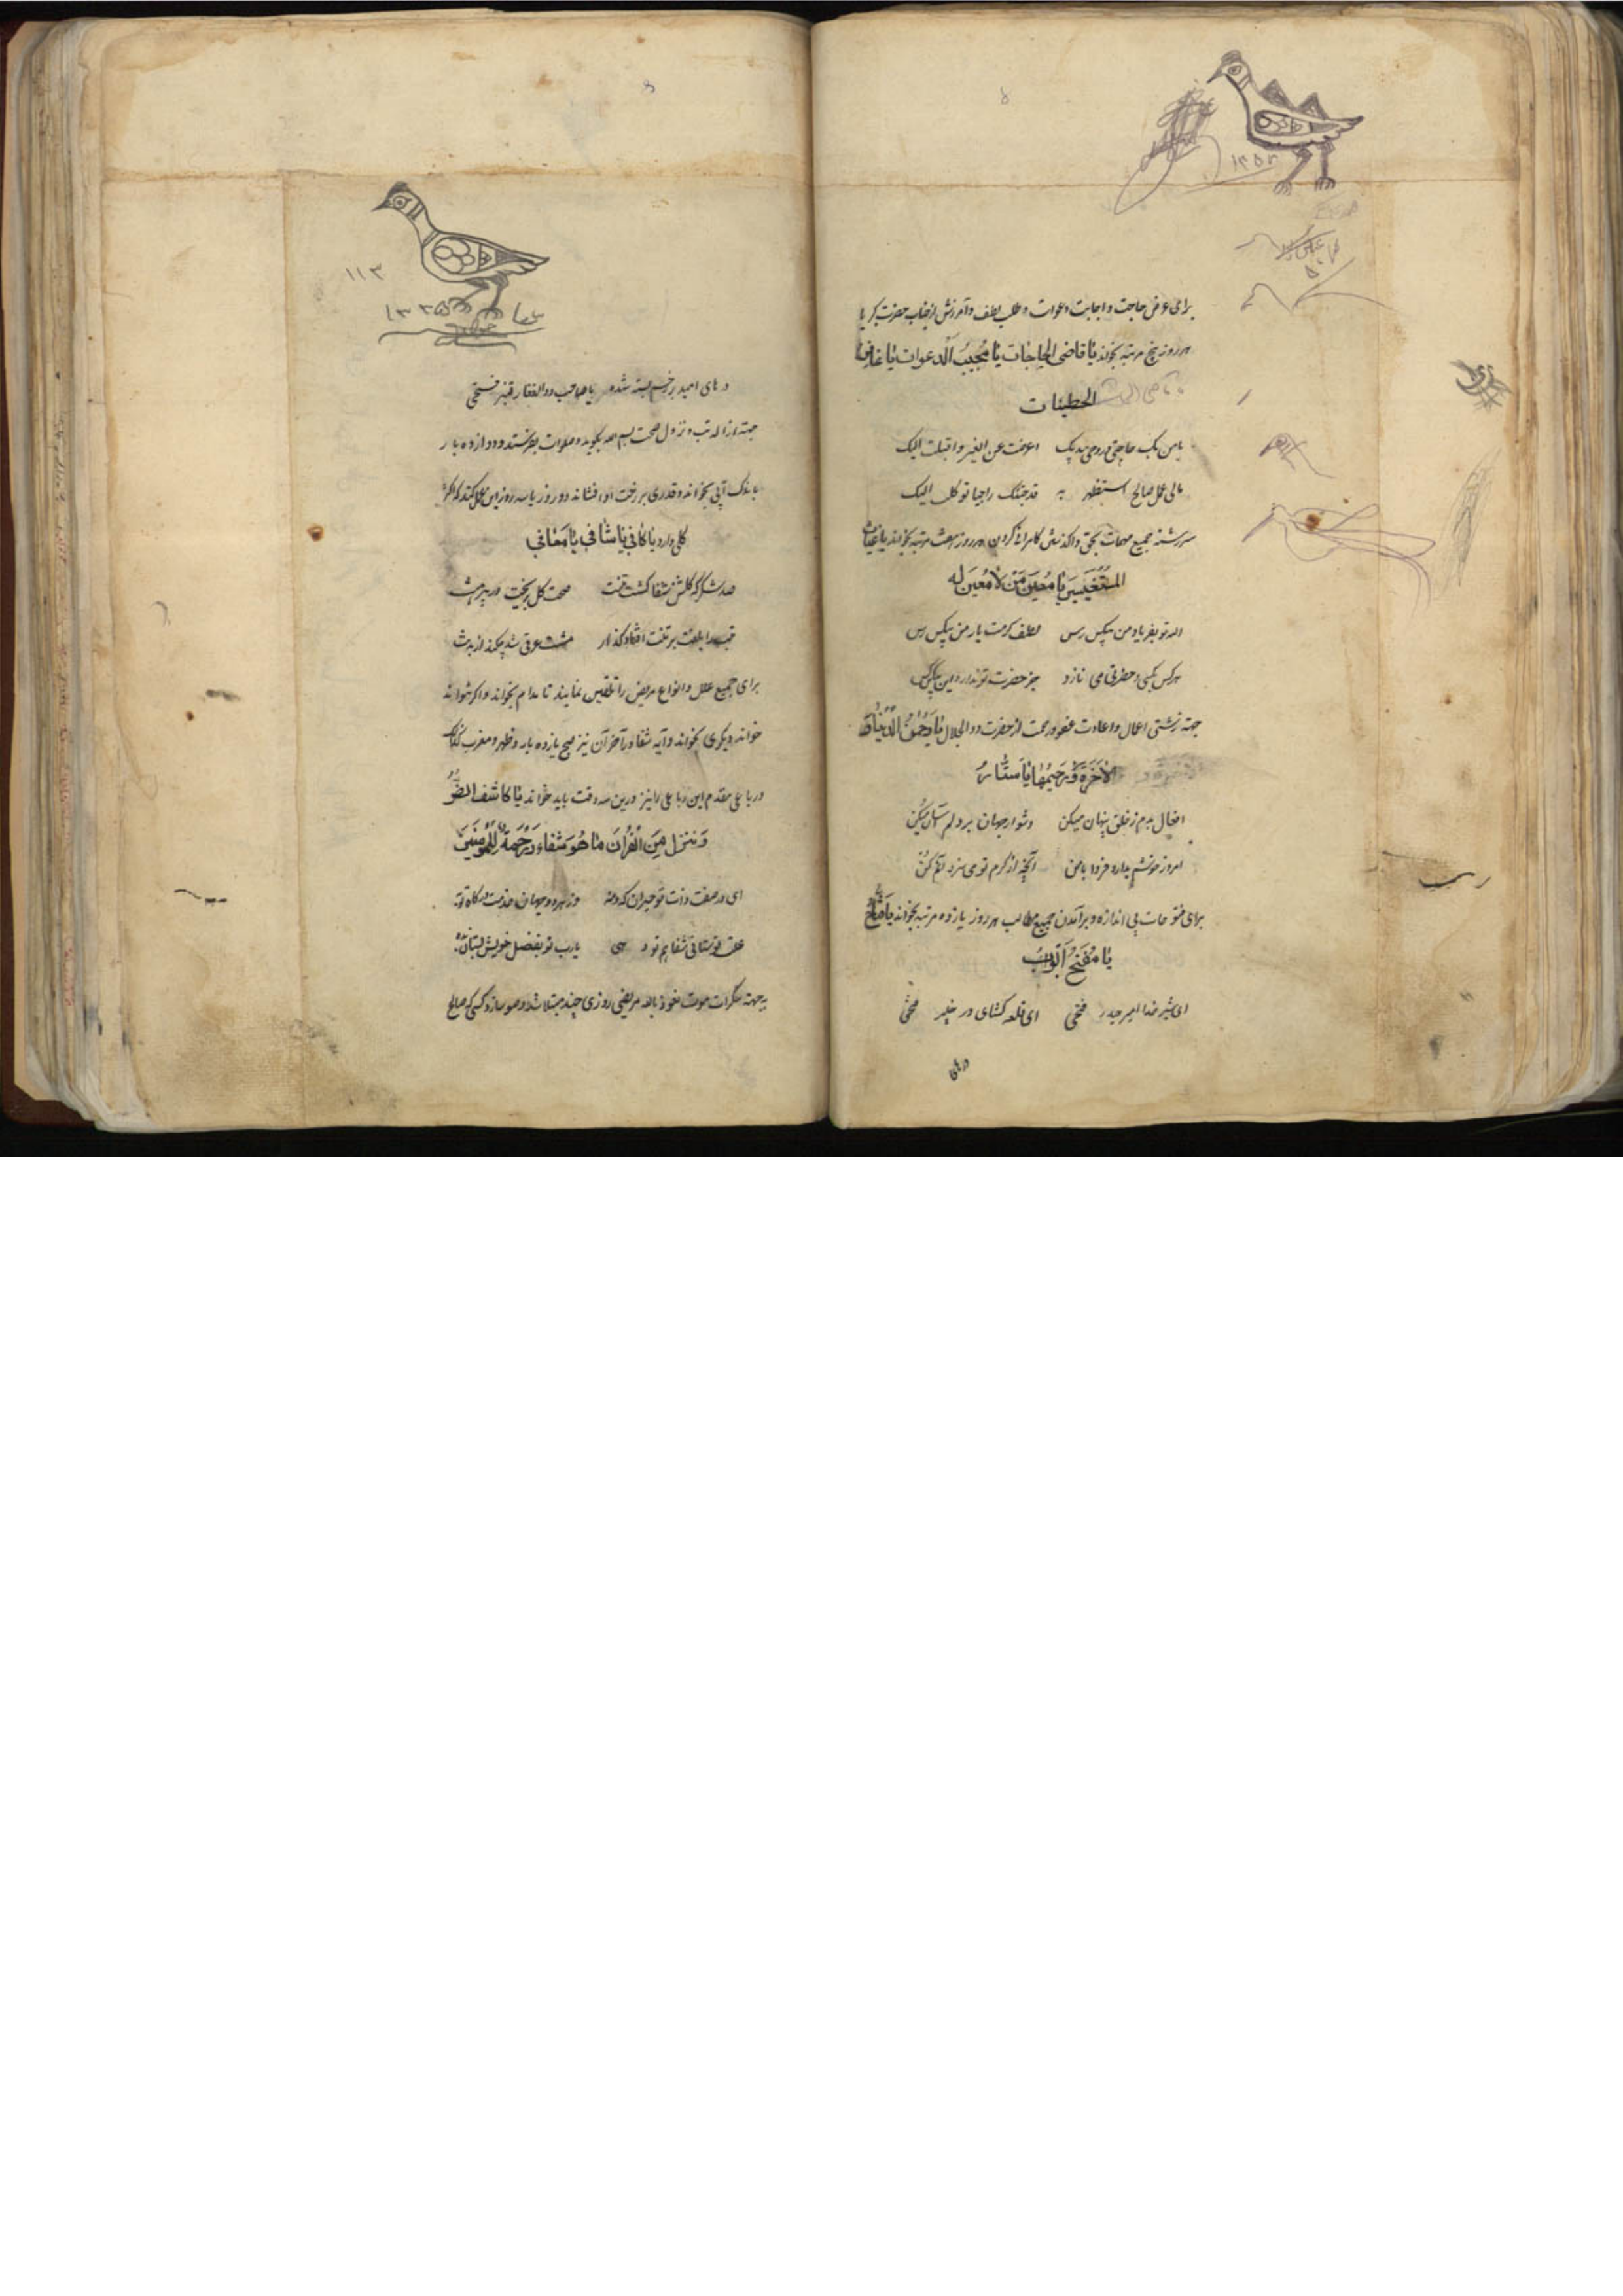 برای عرض حاجت و اجابت دعوات و طلب لطف و آمرزش از جناب حضرت کبریا
هر روز پنج مرتبه بخواند یا قاضی الحاجات یا مجیب الدعوات یا غافر
الخطیئات
یا من بک حاجتی و روحی بیدیک اعرضت عن الغیر و اقبلت الیک
مالی عمل صالح استظهر به قد جئتک راجیا توکلت الیک
سررشته جمیع مهمات بحق واگذاشتن هر روز هشت مرتبه بخواند یا غیاث
المستغیثین یا معین من لا معین له
الله تو بفریاد من بیکس رس لطف کرمت یار من بیکس بس
هر کس بکسی و حضرتی می نازد جز حضرت تو ندارد این بیکس کس
جهته زشتی اعمال و عفو و رحمت از حضرت ذو الجلال یا رحمن الدنیا و
الاخرة و رحیمهما یا ستار
افعال بدم ز خلق پنهان میکن دشوار جهان بر دلم آسان میکن
امروز خوشم بدار و فردا با من آنچه از کرم تو می سزد آن میکن
برای فتوحات بی اندازه و برآمدن جمیع مطالب هر روز یازده مرتبه بخواند یا فتاح
یا مفتح ابواب
ای شیر خدا امیر حیدر فتحی ای قلعه کشای در خیبر فتحی
درهای
۱۱۳
۱۳۳۵
درهای امید بر رخم بسته شده یا صاحب ذوالفقار قنبر فتحی
جهته ازاله تب و نزول صحت بسم الله بگوید و صلوات بفرستد و دوازده بار
باندک آبی بخواند و قدری بر رخت او افشاند دو روز یا سه روز این عمل کند که اثر
کلی دارد یا کافی یا شافی یا معافی
صد شکر که گلشن شفا گشت تنت صحت گل ریخت در پیرهنت
تب را بغلط بر تنت افتاد گذار عرقی شد بچکید از بدنت
برای جمیع علل و انواع مریض را تلقین نمایند تا مدام بخواند و اگر نتواند
خواند دیگری بخواند و آیه شفا در آخر آن نیز صبح یازده بار و ظهر و مغرب
و رباعی مقدم این رباعی را نیز درین سه وقت باید خواند یا کاشف الضر
و ننزل من القرآن ما هو شفاء و رحمة للمؤمنین
ای در صفت ذات تو حیران که و مه وز هر دو جهان خدمت درگاه تو به
علت تو ستانی شفا هم تو دهی یارب تو بفضل خویش بستان و بده
به جهته سکرات موت نعوذ بالله مریضی روزی چند مبتلا باشد وضو سازد کسی که صالح